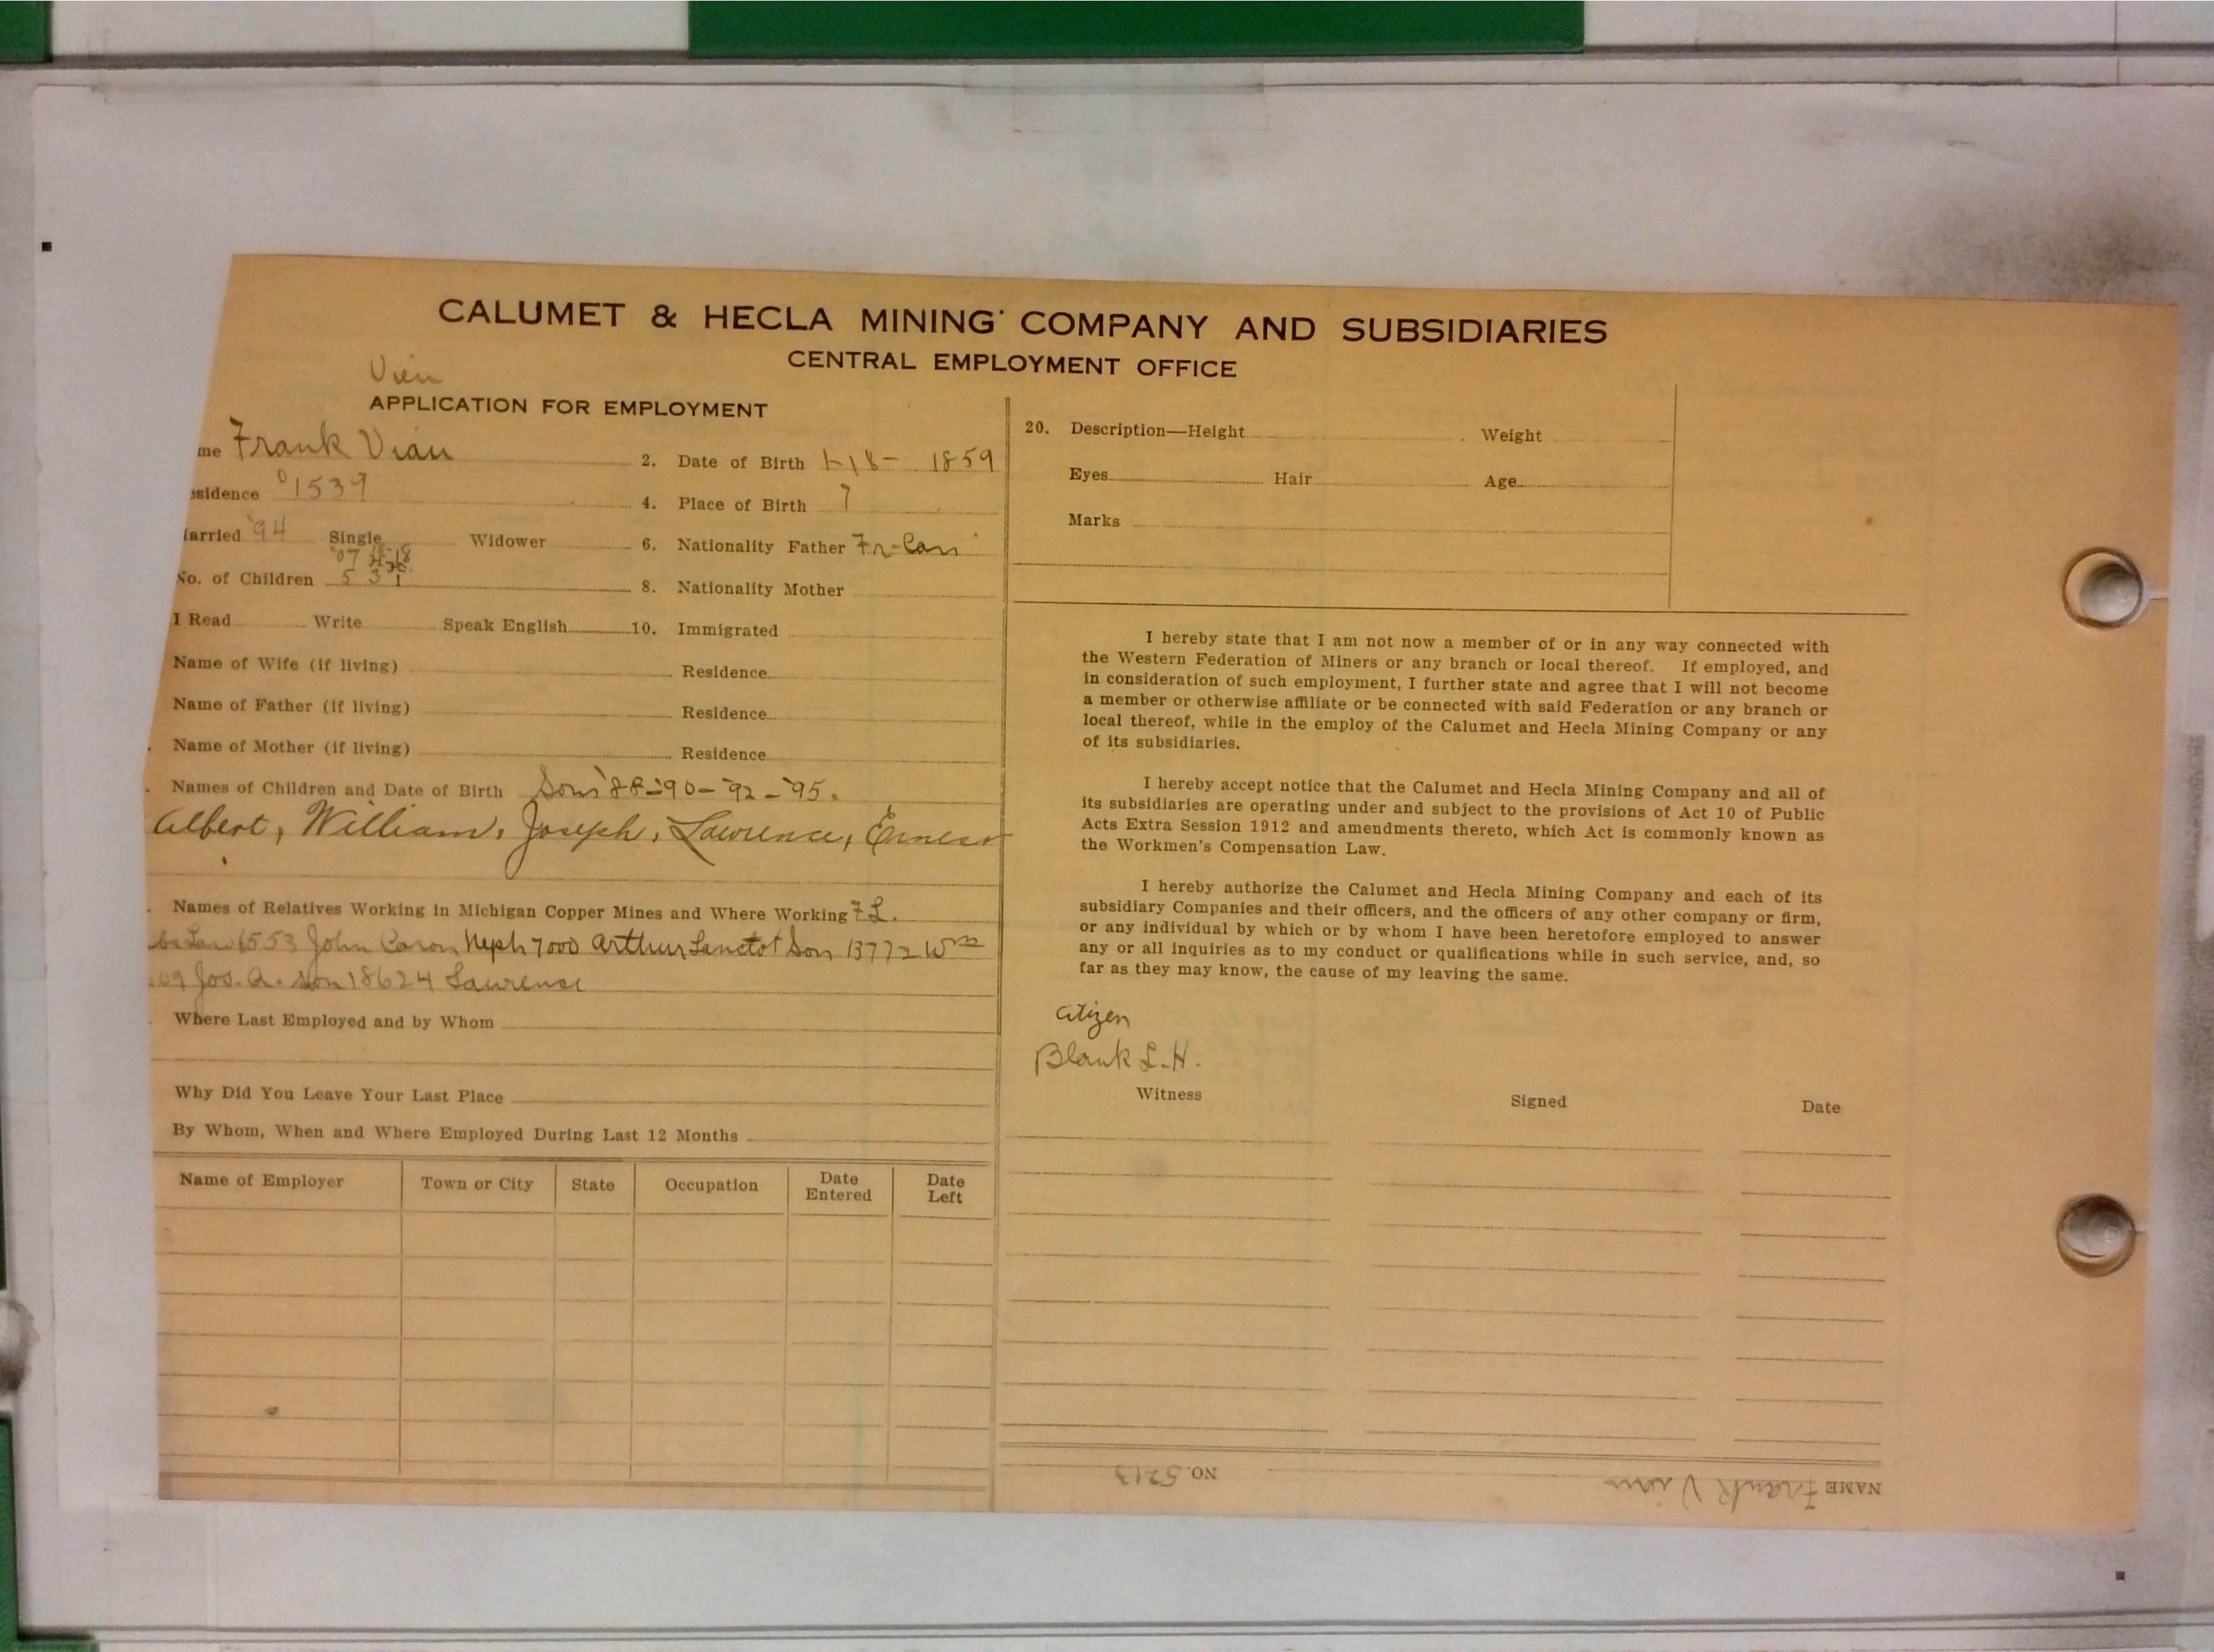 CALUMET & HECLA MINING COMPANY AND SUBSIDIARIES
CENTRAL EMPLOYMENT OFFICE
Vien
APPLICATION FOR EMPLOYMENT
me Frank Vian 2. Date of Birth 1-18- 1859
sidence 1539 4. Place of Birth
arried '94 Single Widower 6. Nationality Father Fr-Can
'07
No. of Children 5 3 1 8. Nationality Mother
I Read Write Speak English 10. Immigrated
Name of Wife (if living) Residence
Name of Father (if living) Residence
Name of Mother (if living) Residence
Names of Children and Date of Birth Sons '88-'90-'92-'95.
Albert, William, Joseph, Lawrence, Ernest
Names of Relatives Working in Michigan Copper Mines and Where Working
Law 6553 John Caron Neph 7000 Arthur Lanctot Son 13772 Wm
09 Jos. A. son 18624 Lawrence
Where Last Employed and by Whom
Why Did You Leave Your Last Place
By Whom, When and Where Employed During Last 12 Months
Name of Employer Town or City State Occupation Date Entered Date Left
20. Description—Height Weight
Eyes Hair Age
Marks
I hereby state that I am not now a member of or in any way connected with
the Western Federation of Miners or any branch or local thereof. If employed, and
in consideration of such employment, I further state and agree that I will not become
a member or otherwise affiliate or be connected with said Federation or any branch or
local thereof, while in the employ of the Calumet and Hecla Mining Company or any
of its subsidiaries.
I hereby accept notice that the Calumet and Hecla Mining Company and all of
its subsidiaries are operating under and subject to the provisions of Act 10 of Public
Acts Extra Session 1912 and amendments thereto, which Act is commonly known as
the Workmen's Compensation Law.
I hereby authorize the Calumet and Hecla Mining Company and each of its
subsidiary Companies and their officers, and the officers of any other company or firm,
or any individual by which or by whom I have been heretofore employed to answer
any or all inquiries as to my conduct or qualifications while in such service, and, so
far as they may know, the cause of my leaving the same.
Citizen
Blank L.H.
Witness Signed Date
NAME Frank Vian NO. 5213